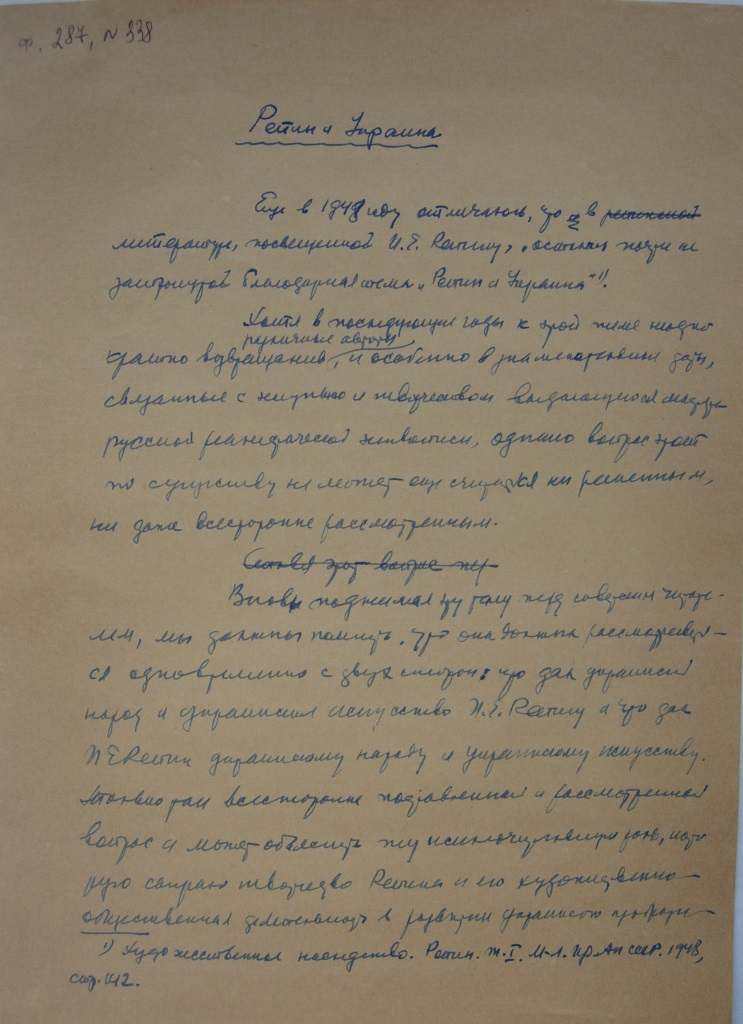 ф. 287, N 338
Репин и Украина
Еще в 1948 году отмечалось, что и в репинской
литературе, посвещенной И.Е. Репину, „осталась почти не
затронутой благодарная тема „Репин и Украина"¹).
Хотя в последующие годы к этой теме неодно
различные авторы
кратно возвращались, и особенно в знаменательные даты,
связанные с жизнью и творчеством выдающегося мастера
русской реалистической живописи, однако вопрос этот
по существу не может еще считаться ни решенным,
ни даже всесторонне рассмотренным.
этот вопрос
Вновь поднимая эту тему перед советским читате-
лем, мы должны помнить, что она должна рассматривать-
ся одновременно с двух сторон: что дал украинский
народ и украинское искусство И.Е. Репину и что дал
И Е Репин украинскому народу и украинскому искусству.
Только так всесторонне поставленный и рассмотренный
вопрос и может объяснить ту исключительную роль, кото
рую сыграло творчество Репина и его художественно-
общественная деятельность в развитии украинского
¹) Художественное наследство. Репин. т. I. М-Л. Изд. АН СССР. 1948,
стр. 142.